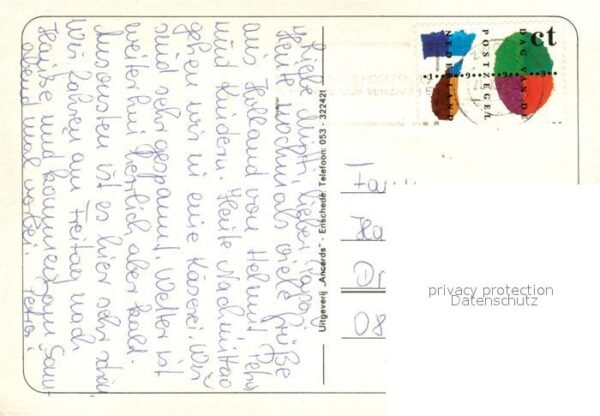 Liebe Mutti, lieber Papa,
Heute nochmals viele Grüße
aus Holland von Helmut, Petra
und Kindern. Heute Nachmittag
gehen wir in eine Käserei. Wir
sind sehr gespannt. Wetter ist
weiterhin herrlich aber kalt.
Ansonsten ist es hier sehr schön.
Wir fahren am Freitag nach
Hause und kommen dann Sams-
abend mal vorbei. Petra
Uitgeverij „Ancards" - Enschede. Telefoon: 053 - 322421
DAG VAN DE
POSTZEGEL
NEDERLAND
1 9 9 3
ct
Fa
Ha
Dr
08
privacy protection
Datenschutz